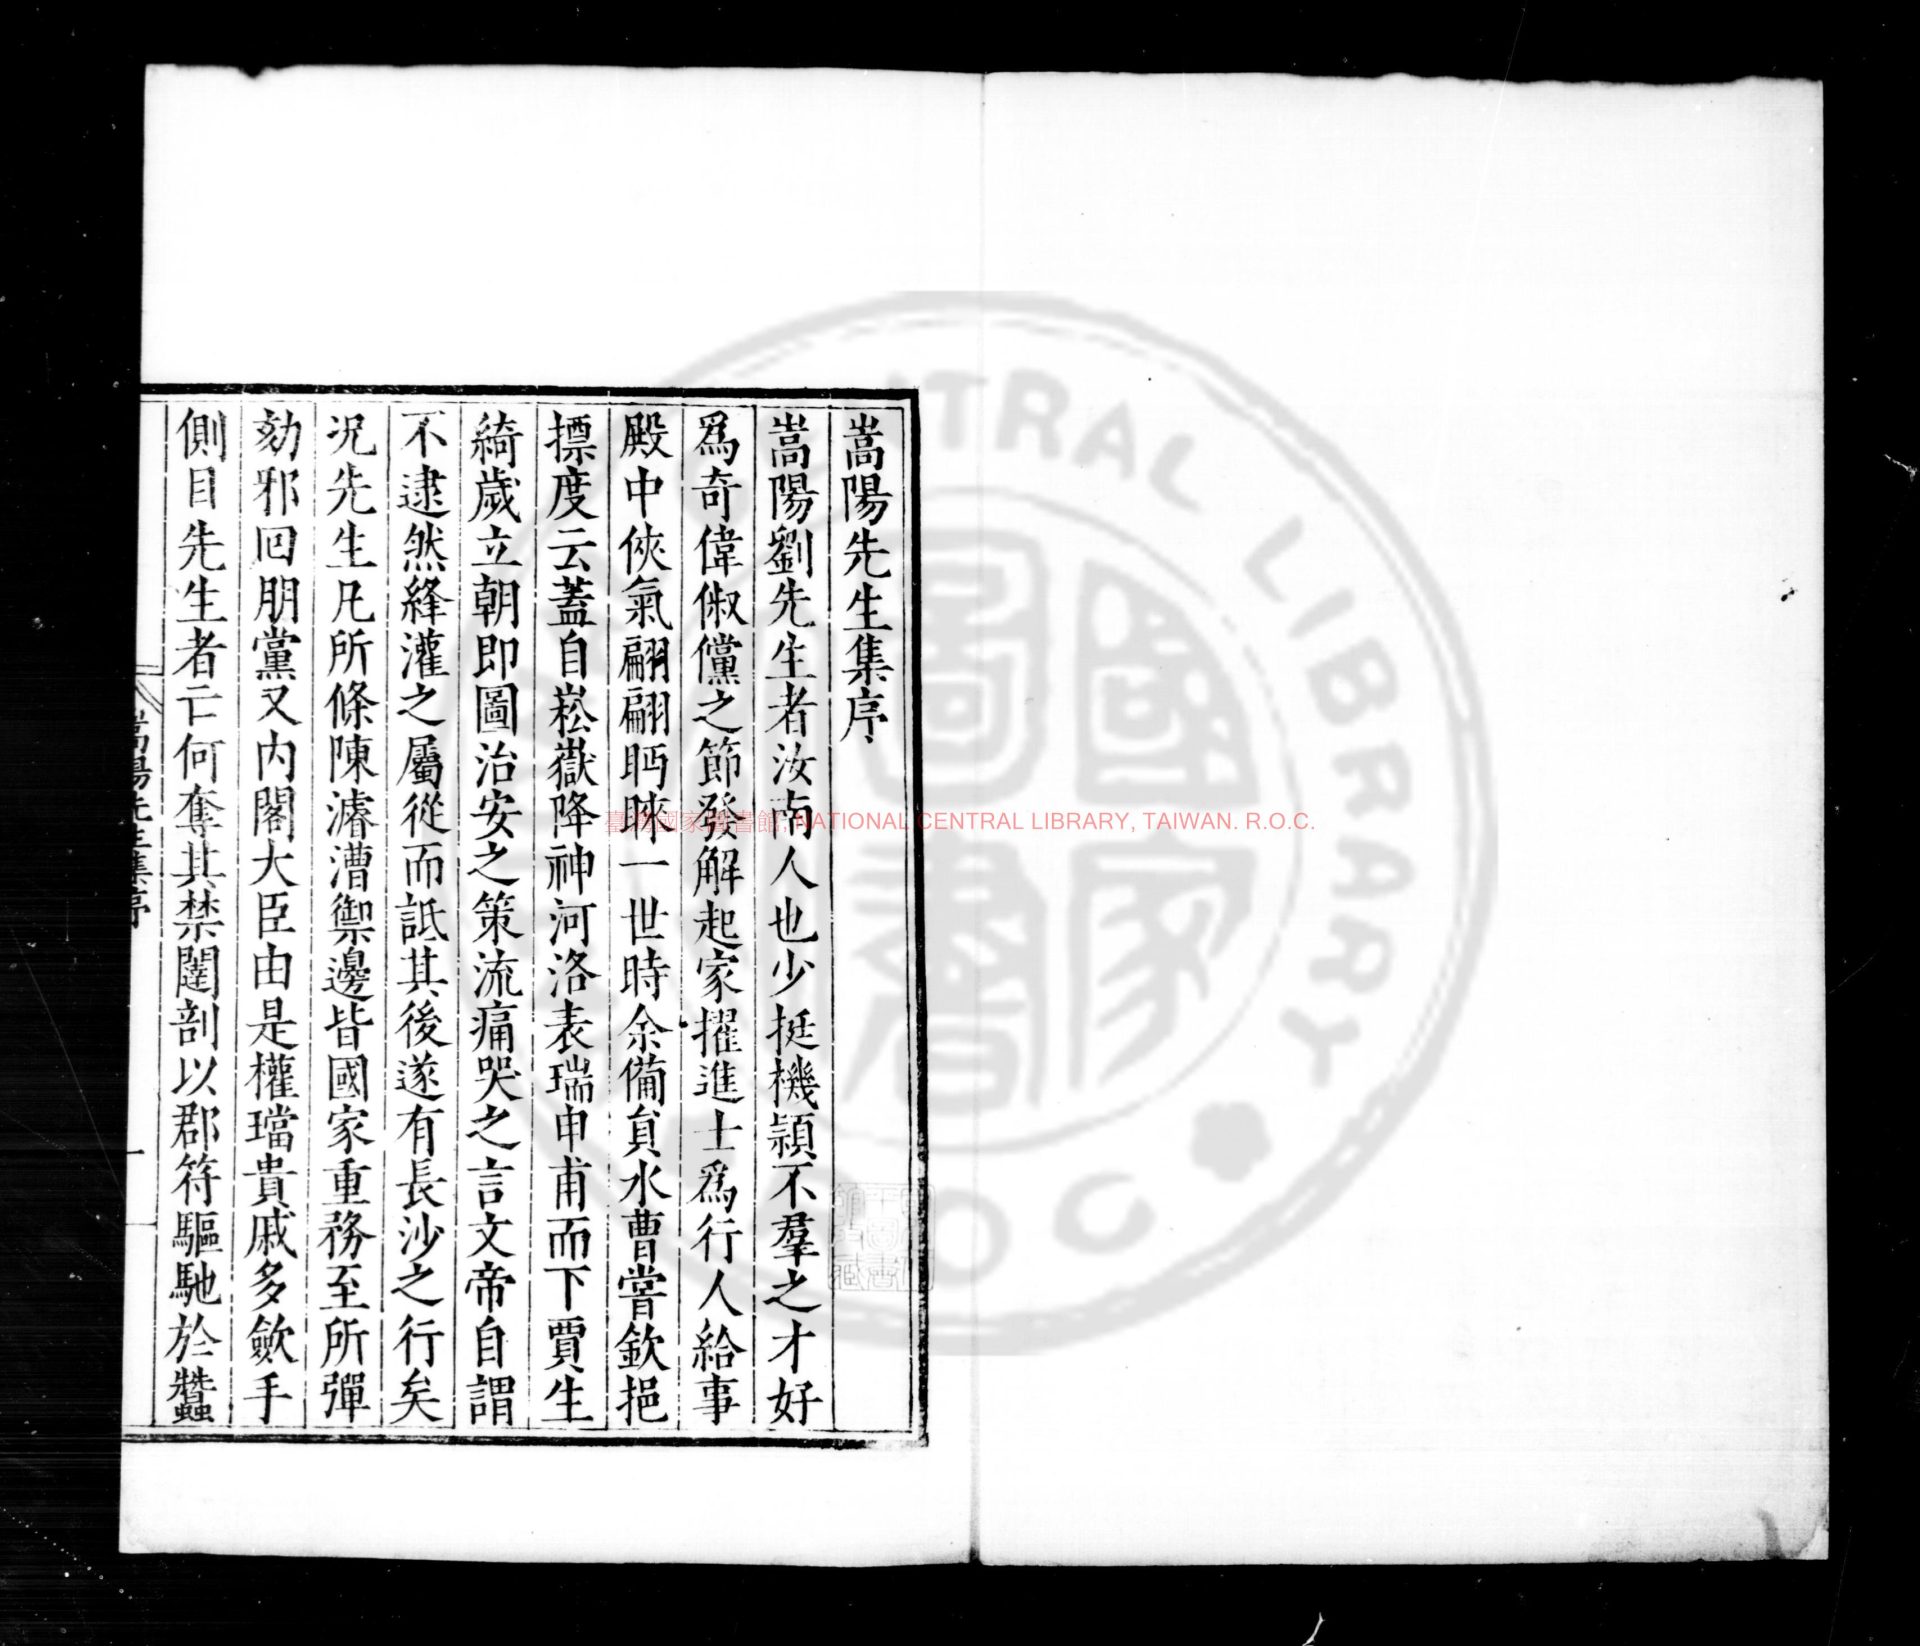 嵩陽先生集序
嵩陽劉先生者汝南人也少挺機穎不羣之才好
爲奇偉俶儻之節發解起家擢進士爲行人給事
殿中俠氣翩翩眄睞一世時余備貟水曹嘗欽挹
摽度云蓋自崧嶽降神河洛表瑞申甫而下賈生
綺歲立朝即圖治安之策流痛哭之言文帝自謂
不逮然絳灌之屬從而詆其後遂有長沙之行矣
况先生凡所條陳濬漕禦邊皆國家重務至所彈
劾邪回朋黨又内閣大臣由是權璫貴戚多斂手
側目先生者亡何奪其禁闥剖以郡符驅馳於蠶
嵩陽先生集序
一
臺灣國家圖書館, NATIONAL CENTRAL LIBRARY, TAIWAN. R.O.C.